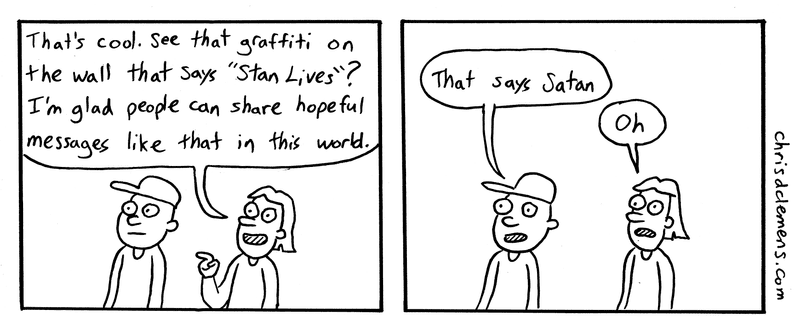 That's cool. See that graffiti on
the wall that says "Stan Lives"?
I'm glad people can share hopeful
messages like that in this world.
That says Satan
Oh
chrisdclemens.com